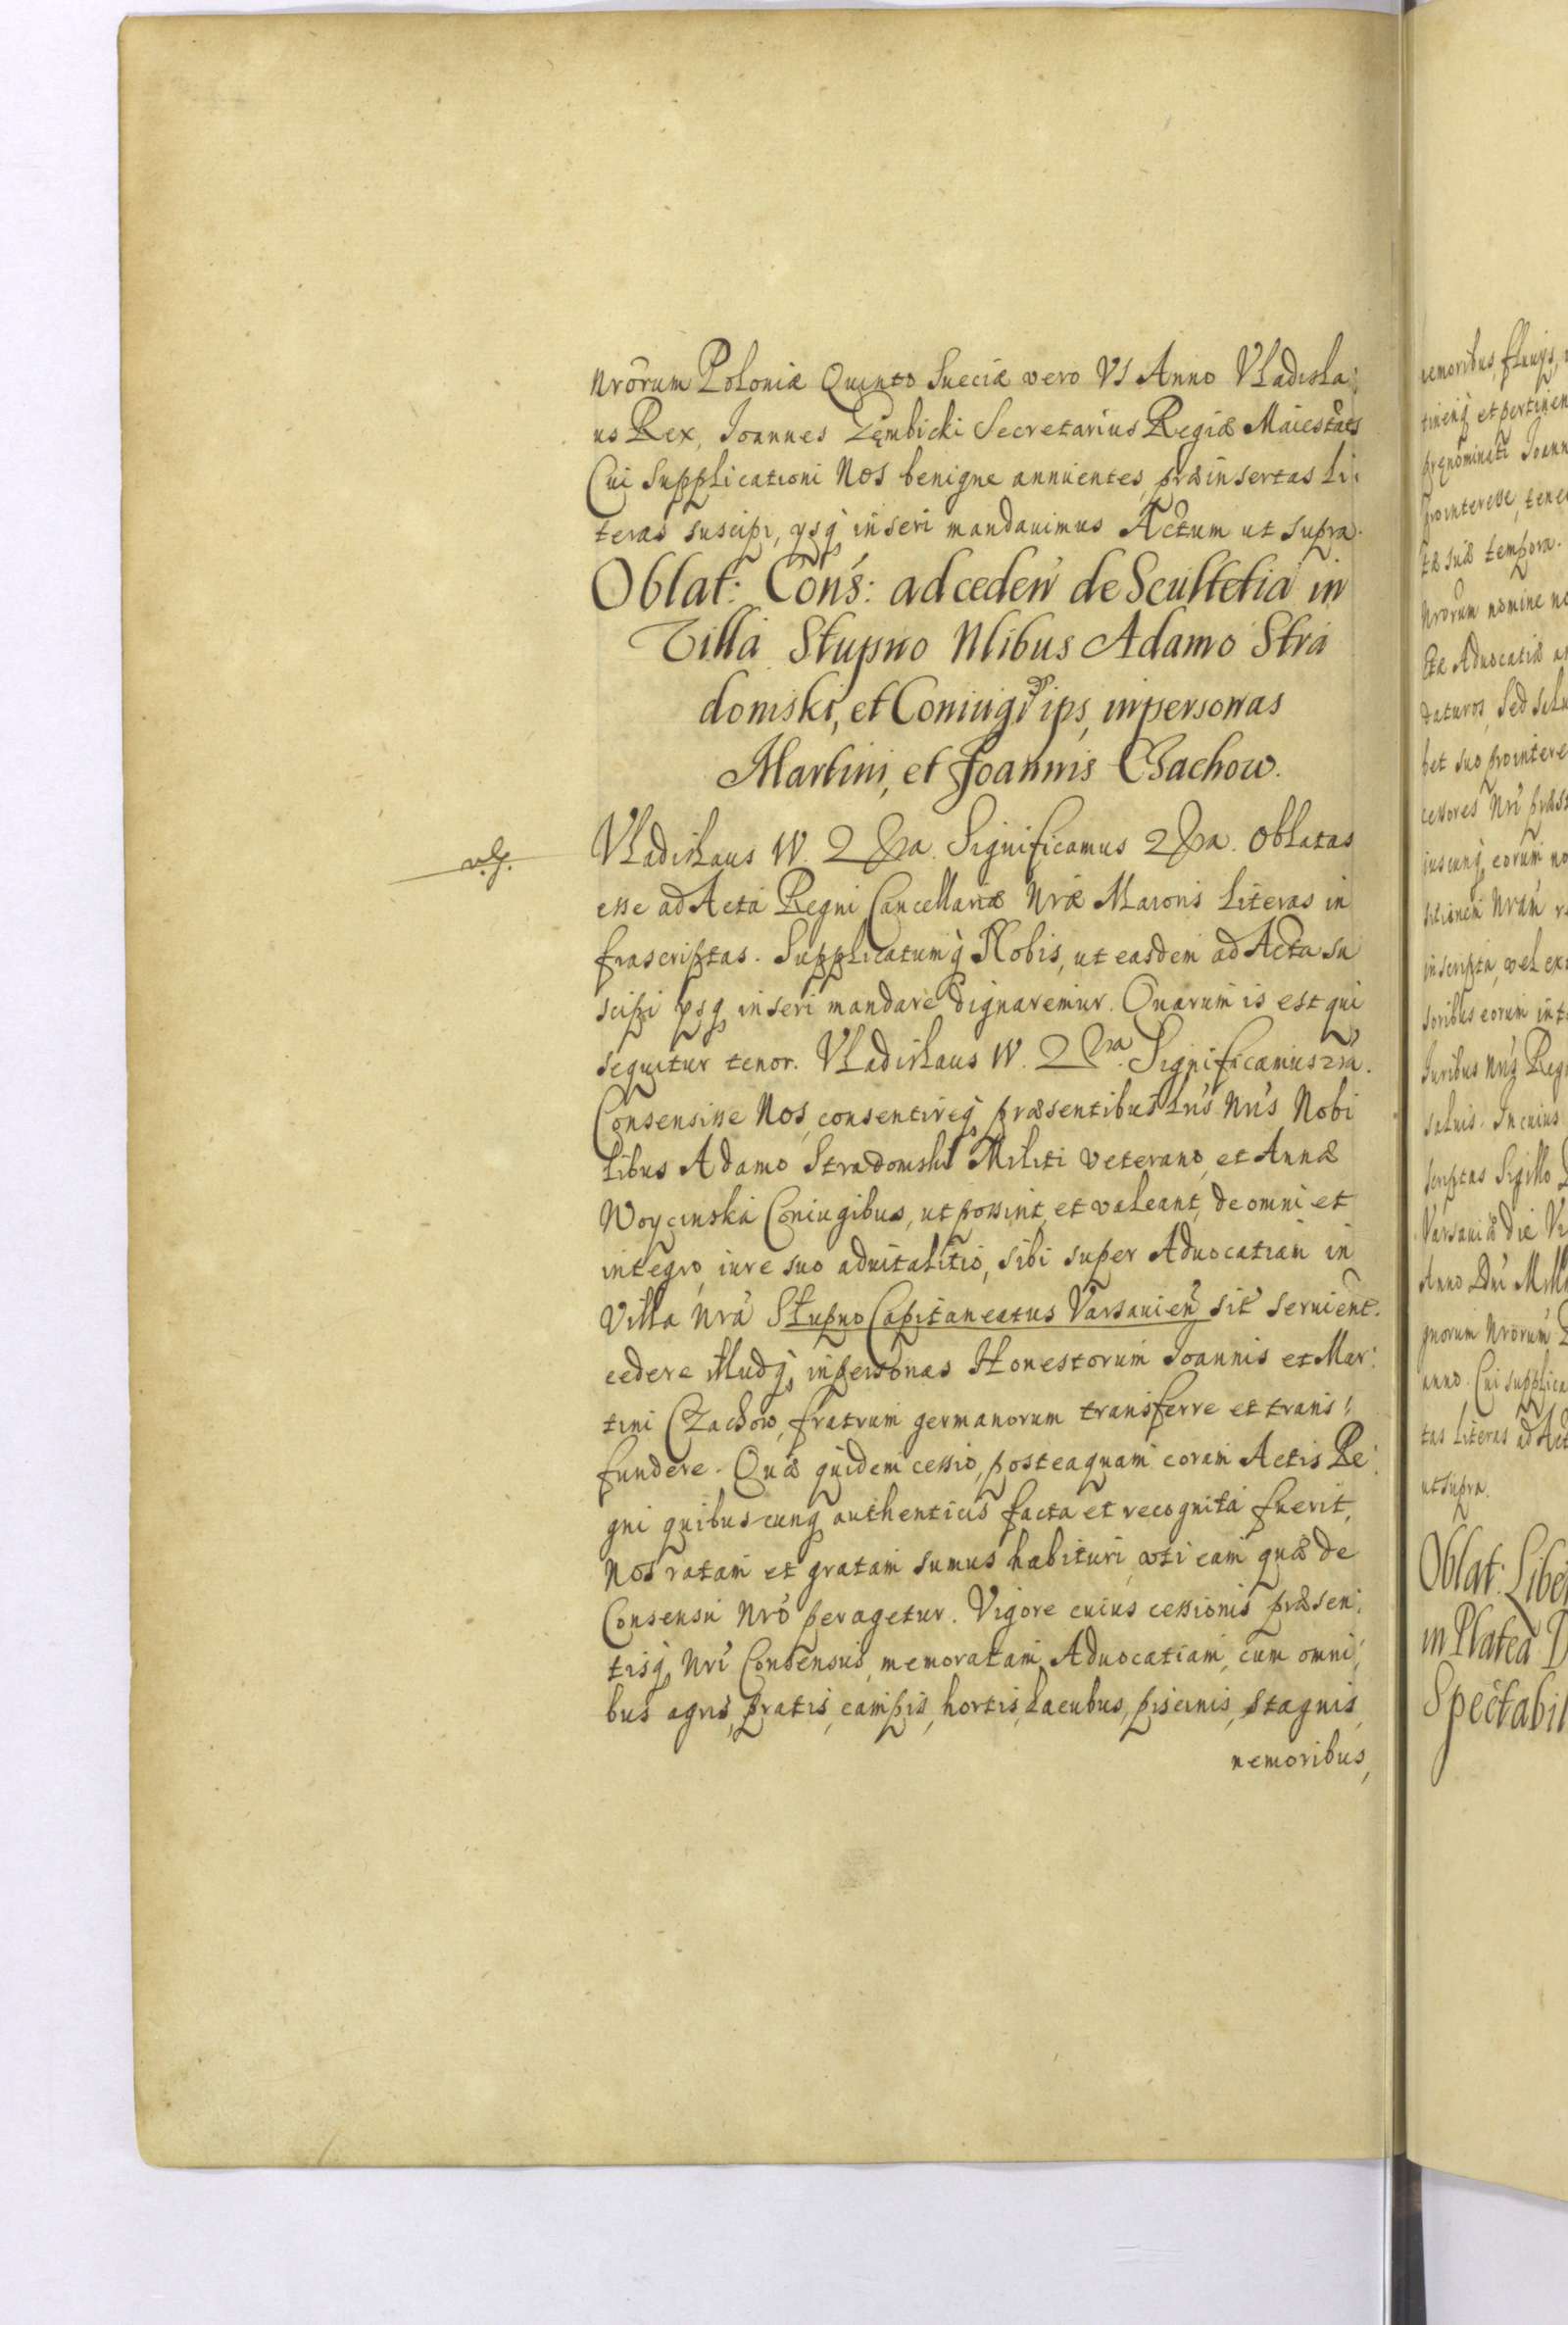 nrorum Poloniæ Quinto Sueciæ vero VI Anno Vladisla:
us Rex, Joannes Zembicki Secretarius Regiæ Maiestats
Cui Supplicationi Nos benigne annuentes, præinsertas Li:
teras suscipi, ysq inseri mandauimus Actum ut supra.
Oblat: Cons: ad ceden de Scultetia in
Villa Stupno Nlibus Adamo Stra
domski, et Coniugi ips, in personas
Martini, et Joannis Czachow.
Vladislaus IV. 2 Xra. Significamus 2 Xra. Oblatas
esse ad Acta Regni Cancellariæ Nræ Maioris Literas in
frascriptas. Supplicatumq Nobis, ut easdem ad Acta su
scipi ysq inseri mandare dignaremur. Quarum is est qui
sequitur tenor. Vladislaus IV. 2 Xra. Significamus 2ra.
Consensisse Nos, consentireq præsentibus Lris Nris Nobi
libus Adamo Stradomski Militi veterano, et Annæ
Woycinska Coniugibus, ut possint, et valeant, de omni et
integro, iure suo aduitalitio, sibi super Aduocatiam in
Villa nra Stupno Capitaneatus Varsauien sit seruient.
cedere illudq, in personas Honestorum Joannis et Mar:
tini Czachow, fratrum germanorum transferre et trans:
fundere. Quæ quidem cessio, posteaquam coram Actis Re:
gni quibuscunq authenticis facta et recognita fuerit,
Nos ratam et gratam sumus habituri, uti eam quæ de
Consensu Nro peragetur. Vigore cuius cessionis præsen:
tisq Nri Consensus, memoratam Aduocatiam, cum omni:
bus agris, pratis, campis, hortis, lacubus, piscinis, stagnis,
nemoribus,
nemoribus, fluuijs,
tinenq et pertinen
prænominati Joann
pro interesse, tene
tæ suæ tempora.
Nrorum nomine no
ctæ Aduocatiæ a
daturos, Sed salu
bet suo pro intere
cessores Nri præs
iuscunq eorum no
sitionem Nram r
inscripta, vel ex
soribus eorum int
Juribus nris Reg
saluis. In cuius
scriptas Sigillo
Varsauiæ die V
Anno Dni Mill
gnorum Nrorum
anno. Cui supplica
tas Literas ad Act
ut supra.
Oblat: Liber
in Platea D
Spectabil